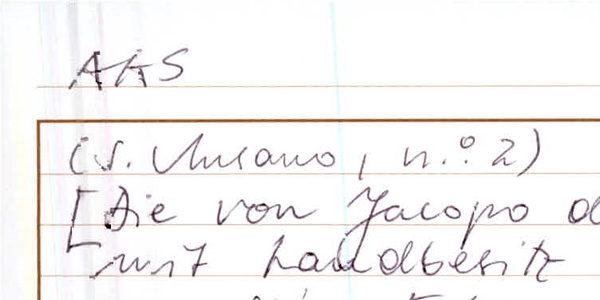 AKS
(s. Murano, n.° 2)
[Die von Jacopo d
mit Landbesitz